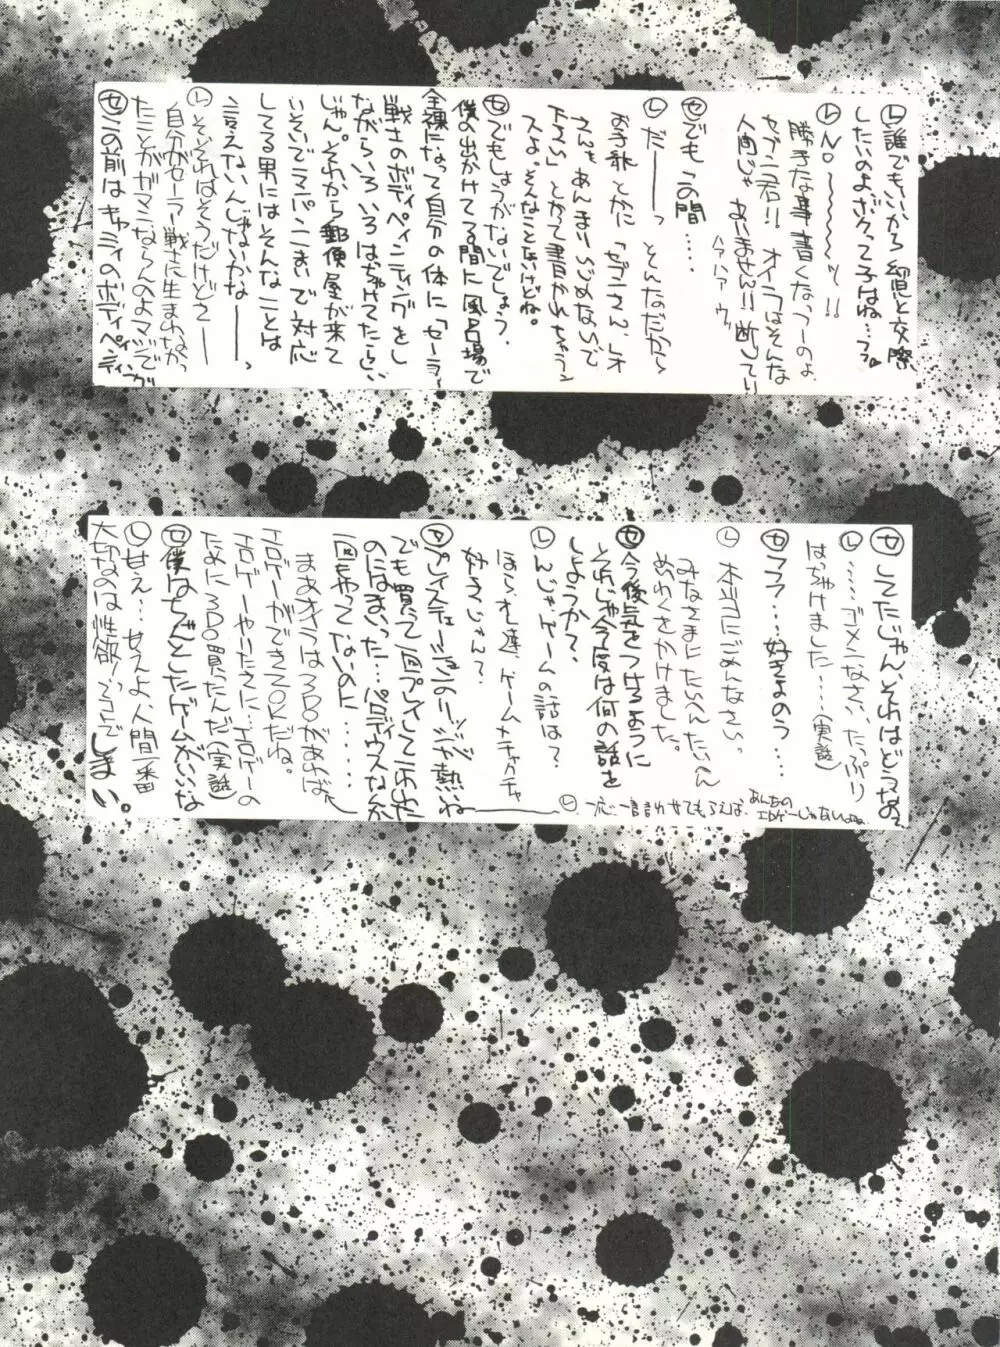 ㋹誰でもいいから幼児と交際
したいのよボクって子はね…って。
㋹No〜〜〜〜〜ッ!!
勝手な事書くなっつーのよ
セブニ君!! オイラはそんな
人間じゃありません!!断じて!!
ハァハァ ウッ
㋝でもこの間…
㋹だーーっ そんなだから
お手紙とかに「セブニさん、レオ
さんをあんまりいじめないで
下さい」とかって書かれちゃうン
スよ。そんなことないけどね。
㋝でもしょうがないでしょう。
僕の出かけてる間に風呂場で
全裸になって自分の体に「セーラー
戦士のボディペインティングをし
ながらいろいろはぢけてたとい
じゃん。それから郵便屋が来て
いそいでマパン一まいで対応
してる男にはそんなことは
言えないんじゃないかなーーー、
㋹そ、それはそうだけどさーー
自分がセーラー戦士に生まれなかっ
たことがガマンならんのよマジで
㋝この前はキャミィのボディペインティング
㋝してたじゃん、それはどうなの。
㋹……ゴメンなさい、たっぷり
はぢけました……(実話)
㋝フフフ…好きよのう…
㋹本当にごめんなさい。
みなさまにたいへんたいへん
めいわくをかけました。
㋝今後気をつけるように
それじゃ今度は何の話を
しようか?
㋹んじゃ、ゲームの話は?
ほらオレ達、ゲームメチャクチャ
好きじゃん?
㋝プレイステェージョンのリッジが熱ね
でも買って一回プレイして二ホヤ
のにはまいった…パロディウスなんか
一回もやってないのに……
まあオラは3DOがあれば
エロゲーができてOKだね。
エロゲーやりたさに、エロゲーの
ために3DO買ったんだ(実話)
㋝僕はちゃんとしたゲームがいいな
㋹甘え…甘えよ、人間一番
大切なのは性欲!ってコトで
しまい。
㋹一応一言言わせてもらえば、あんなの
エロゲーじゃないよね